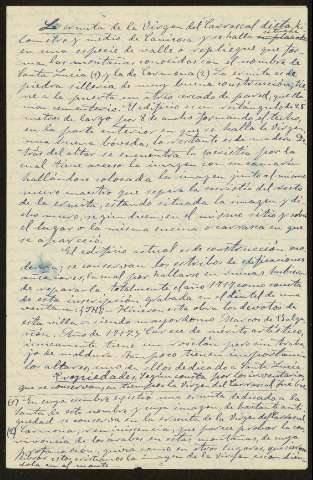 La ermita de la Virgen del Carrascal dista k
lómetro y medio de                y se halla
en una especie de valle o repliegue que for
man las montañas conocidas con el nombre de
Santa Lucía (1) y la de Carramona (2). La ermita es de
piedra sillería de muy buena construcción, tie
ne la puerta un atrio cercado de pared, que de
                El edificio es un rectángulo de 25
metros de largo por 8 de ancho formando el techo,
en la parte interior en que se halla la Virgen,
una buena bóveda, lo restante es de madera. De
trás del altar se encuentra la sacristía por la
cual tiene acceso la imagen con su camarín
hallándose colocada la imagen junto al mismo
muro maestro que separa la sacristía del resto
de la ermita, estando situada la imagen y di
cho muro, según dicen, en el mismo sitio y sobre
el lugar o la misma encina o carrasca en que
se apareció.
El edificio actual es de construcción mo
derna, y se conservan los                de edificaciones
               , la cual por hallarse en ruinas hubieron
de repararla totalmente el año 1777 como consta
de esta inscripción grabada en el dintel de una
ventana. "           Hicieron esta obra los devotos de
esta villa siendo mayordomo Marcos de Balga
ñón. Año de 1777" Carece de mérito artístico,
únicamente tiene un rosetón pero sin traba
jo de moldura. Tampoco tienen importancia
los altares, uno de ellos dedicado a Santa Lucía.
Propiedades. Según consta por los inventarios
que se conservan, en tiempos la Virgen del Carrascal fue due
(1) En cuya cumbre existió una ermita dedicada a la
Santa de este nombre y cuya imagen de bastante anti
güedad se conserva en la ermita de la Virgen del Carrascal
(2) Carramona,                que parece probar la con
vivencia de los árabes en estas montañas, de cuya
               , quizá como en otros lugares, quisieron
librar estos cristianos la imagen de la Virgen escondién
dola en el monte